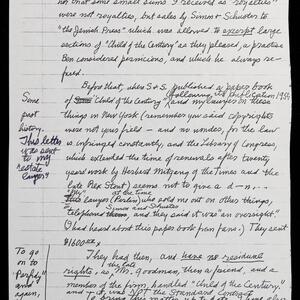 not that some small sums I received as "royalties"
were not royalties, but sales by Simon + Schuster to
"the Jewish Press" which was allowed to excerpt large
sections of "Child of the Century" as they pleased, a practise
Ben considered pernicious, and which he always re-
fered.
Before that, when S + S published a paper book
(following its publication 1954
of "Child of the Century" and my lawyer on these
things in New York (remember you said copyrights
were not your field - and no wonder, for the law
is infringed constantly, and the Library of Congress,
which extended the time of renewals after twenty
years work by Herbert Mitgang of the Times and the
late Rex Stout) seems not to give a d-n,--
"My" at the time
lawyer (Perlin) who sold me out on other things,
Simon and Schuster
telephoned them, and they said it was an "oversight"
(I had heard about this paper book from fans). They sent
$1600.xx
They had then, and have no residual
rights, as, the late Mr. Goodman, then a friend, and a
member of the firm, handled "Child of the Century"
and it was NOT the Standard Contract
Some
past
history.
This letter
was sent
to my
estate
lawyer
To go
on to
Perfidy
and
again,